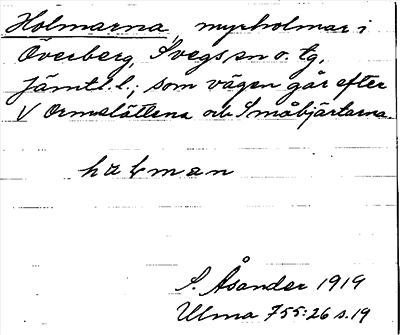 Holmarna, myrholmar i
Överberg, Svegs sn o. tg,
Jämtl. l.; som vägen går efter
V Ormslåttena och Småbjärtarna.
S. Åsander 1919
Ulma 755:26 s.19